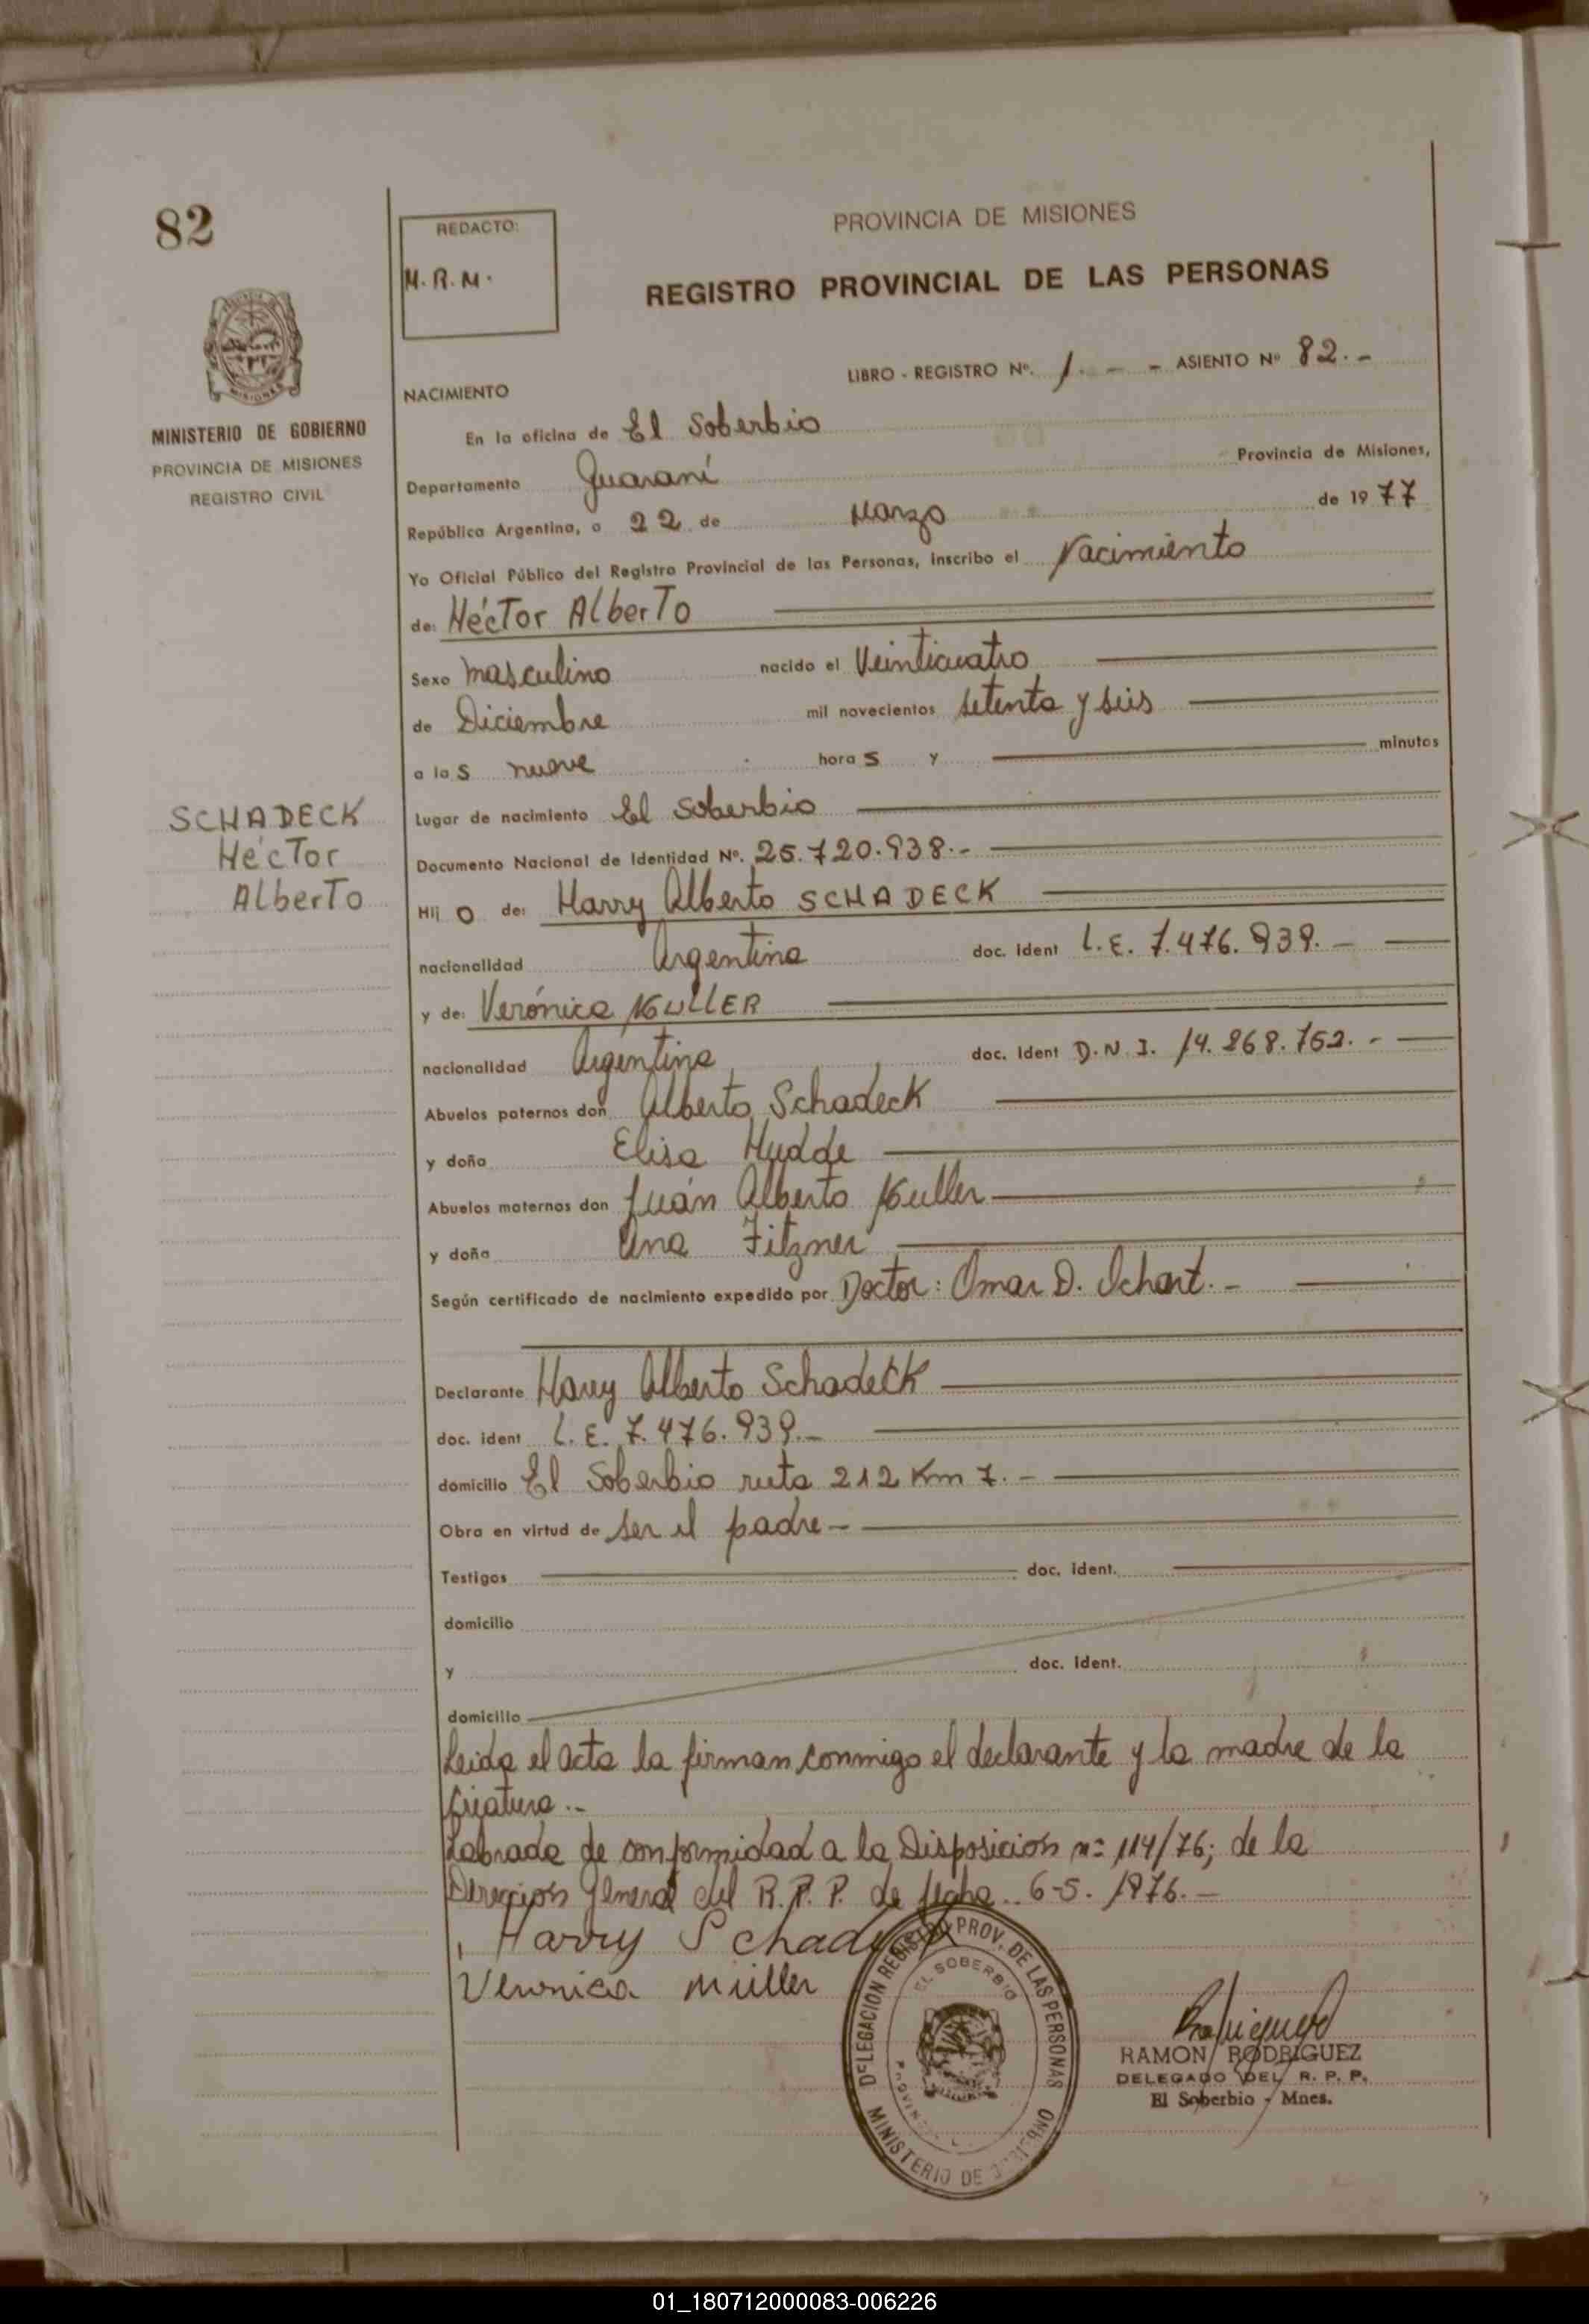 82
REDACTO:
M.R.M.
PROVINCIA DE MISIONES
REGISTRO PROVINCIAL DE LAS PERSONAS
LIBRO - REGISTRO Nº. 1. - - ASIENTO Nº 82.-
MINISTERIO DE GOBIERNO
PROVINCIA DE MISIONES
REGISTRO CIVIL
NACIMIENTO
En la oficina de El Soberbio
Departamento Guaraní Provincia de Misiones,
República Argentina, a 22 de Marzo de 1977
Yo Oficial Público del Registro Provincial de las Personas, inscribo el Nacimiento
de: HécTor AlberTo
Sexo masculino nacido el Veinticuatro
de Diciembre mil novecientos setenta y seis
a las nueve horas y minutos
SCHADECK
HécTor
AlberTo
Lugar de nacimiento El Soberbio
Documento Nacional de Identidad Nº. 25.720.938.-
Hijo de: Harry Alberto SCHADECK
nacionalidad Argentina doc. ident L.E. 7.476.939.-
y de: Verónica MULLER
nacionalidad Argentina doc. ident D.N.I. 14.868.752.-
Abuelos paternos don Alberto Schadeck
y doña Elisa Hudde
Abuelos maternos don Juán Alberto Muller
y doña Ana Fitzner
Según certificado de nacimiento expedido por Doctor: Omar D. Ochart.-
Declarante Harry Alberto Schadeck
doc. ident L.E. 7.476.939.-
domicilio El Soberbio ruta 212 Km 7.-
Obra en virtud de ser el padre-
Testigos doc. ident.
domicilio
y doc. ident.
domicilio
Leida el acta la firman conmigo el declarante y la madre de la
criatura.-
Labrada de conformidad a la Disposición nº 114/76; de la
Dirección General del R.P.P. de fecha 6-5.1976.-
Harry Schadeck
Veronica Müller
DELEGACION REGISTRO PROV. DE LAS PERSONAS
EL SOBERBIO
MINISTERIO DE GOBIERNO
RAMON RODRIGUEZ
DELEGADO DEL R. P. P.
El Soberbio - Mnes.
01_180712000083-006226